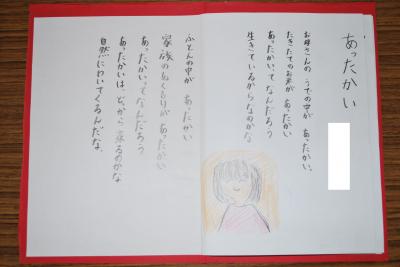 あったかい
お母さんの うでの中が あったかい。
たきたてのお米が あったかい
あったかいってなんだろう
生きているからなのかな
ふとんの中が あったかい
家族のぬくもりが あったかい
あったかいってなんだろう
あったかいは、どっから来るのかな
自然にわいてくるんだな。